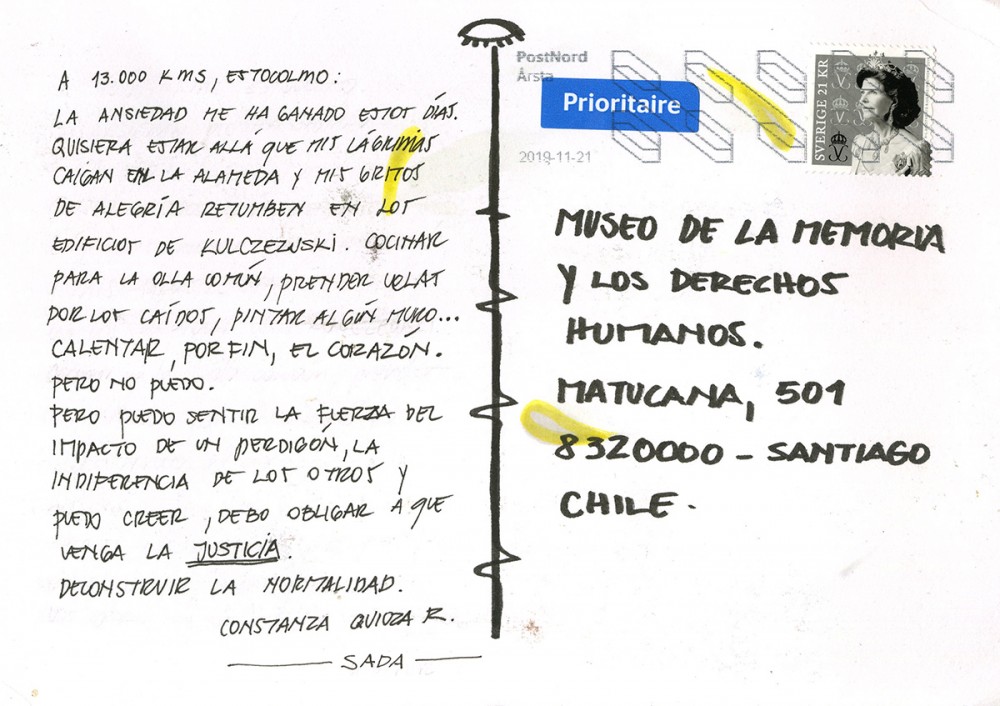 A 13.000 KMS, ESTOCOLMO:
LA ANSIEDAD ME HA GANADO ESTOS DÍAS.
QUISIERA ESTAR ALLÁ QUE MIS LÁGRIMAS
CAIGAN EN LA ALAMEDA Y MIS GRITOS
DE ALEGRÍA RETUMBEN EN LOS
EDIFICIOS DE KULCZEWSKI. COCINAR
PARA LA OLLA COMÚN, PRENDER VELAS
POR LOS CAÍDOS, PINTAR ALGÚN MURO...
CALENTAR, POR FIN, EL CORAZÓN.
PERO NO PUEDO.
PERO PUEDO SENTIR LA FUERZA DEL
IMPACTO DE UN PERDIGÓN, LA
INDIFERENCIA DE LOS OTROS Y
PUEDO CREER, DEBO OBLIGAR A QUE
VENGA LA JUSTICIA.
DECONSTRUIR LA NORMALIDAD.
CONSTANZA QUIOZA R.
SADA
PostNord
Årsta
Prioritaire
2019-11-21
SVERIGE 21 KR
MUSEO DE LA MEMORIA
Y LOS DERECHOS
HUMANOS.
MATUCANA, 501
8320000 - SANTIAGO
CHILE.